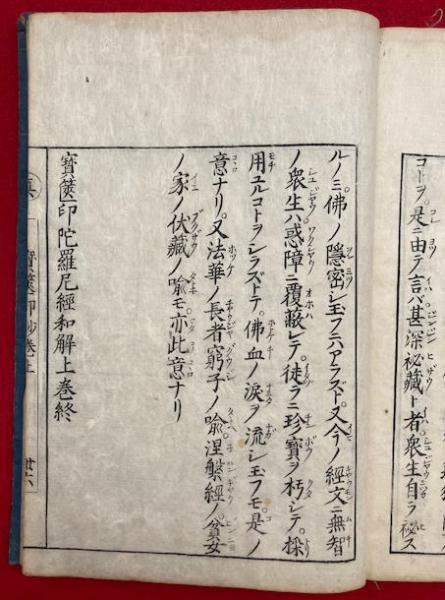 コトヲ。是ニ由テ言バ甚深祕藏ト者衆生自ラ祕ス
ルノミ。佛ノ隱密シ玉フニハアラズト。又今ノ經文ニ無智
ノ衆生ハ惑障ニ覆蔽レテ。徒ラニ珍寶ヲ朽シテ。採
用ユルコトヲシラズトテ。佛血ノ淚ヲ流シ玉フモ。是ノ
意ナリ。又法華ノ長者窮子ノ喩。涅槃經ノ。貧女
ノ家ノ伏藏ノ喩モ。亦此意ナリ
寶篋印陀羅尼經和解上卷終
寶篋印鈔卷上 廿六